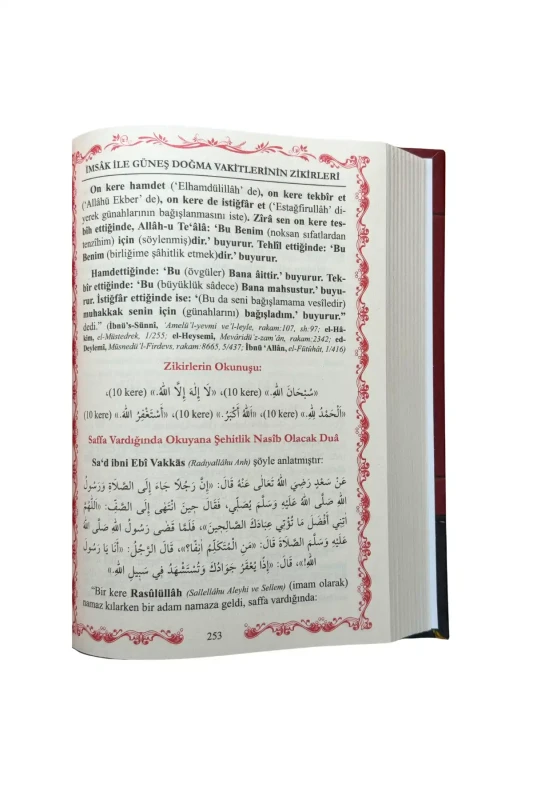 İMSÂK İLE GÜNEŞ DOĞMA VAKİTLERİNİN ZİKİRLERİ
On kere hamdet (‘Elhamdülillâh’ de), on kere tekbîr et
(‘Allâhü Ekber’ de), on kere de istiğfâr et (‘Estağfirullâh’ di-
yerek günahlarının bağışlanmasını iste). Zîrâ sen on kere tes-
bîh ettiğinde, Allâh-u Te‘âlâ: ‘Bu Benim (noksan sıfatlardan
tenzîhim) için (söylenmiş)dir.’ buyurur. Tehlîl ettiğinde: ‘Bu
Benim (birliğime şâhitlik etmek)dir.’ buyurur.
Hamdettiğinde: ‘Bu (övgüler) Bana âittir.’ buyurur. Tek-
bîr ettiğinde: ‘Bu (büyüklük sâdece) Bana mahsustur.’ buyu-
rur. İstiğfâr ettiğinde ise: ‘(Bu da seni bağışlamama vesîledir)
muhakkak senin için (günahlarını) bağışladım.’ buyurur.”
dedi.” (İbnü’s-Sünnî, ‘Amelü’l-yevmi ve’l-leyle, rakam:107, sh:97; el-Hâ-
kim, el-Müstedrek, 1/255; el-Heysemî, Mevâridü’z-zam’ân, rakam:2342; ed-
Deylemî, Müsnedü’l-Firdevs, rakam:8665, 5/437; İbnü ‘Allân, el-Fütûhât, 1/416)
Zikirlerin Okunuşu:
«سُبْحَانَ اللهِ.» (10 kere)، «لَا إِلٰهَ إِلَّا اللهُ.» (10 kere)،
«اَلْحَمْدُ لِلّٰهِ.» (10 kere)، «اَللهُ أَكْبَرُ.» (10 kere)، «أَسْتَغْفِرُ اللهَ.» (10 kere)
Saffa Vardığında Okuyana Şehitlik Nasîb Olacak Duâ
Sa‘d ibni Ebî Vakkâs (Radıyallâhu Anh) şöyle anlatmıştır:
عَنْ سَعْدٍ رَضِيَ اللهُ تَعَالَى عَنْهُ قَالَ: «إِنَّ رَجُلًا جَاءَ إِلَى الصَّلَاةِ وَرَسُولُ
اللهِ صَلَّى اللهُ عَلَيْهِ وَسَلَّمَ يُصَلِّي، فَقَالَ حِينَ انْتَهَى إِلَى الصَّفِّ: «اَللّٰهُمَّ
اٰتِنِي أَفْضَلَ مَا تُؤْتِي عِبَادَكَ الصَّالِحِينَ»، فَلَمَّا قَضَى رَسُولُ اللهِ صَلَّى اللهُ
عَلَيْهِ وَسَلَّمَ الصَّلَاةَ قَالَ: «مَنِ الْمُتَكَلِّمُ اٰنِفًا؟»، قَالَ الرَّجُلُ: «أَنَا يَا رَسُولَ
اللهِ!»، قَالَ: «إِذًا يُعْقَرُ جَوَادُكَ وَتُسْتَشْهَدُ فِي سَبِيلِ اللهِ.»
“Bir kere Rasûlüllâh (Sallellâhu Aleyhi ve Sellem) (imam olarak)
namaz kılarken bir adam namaza geldi, saffa vardığında:
253